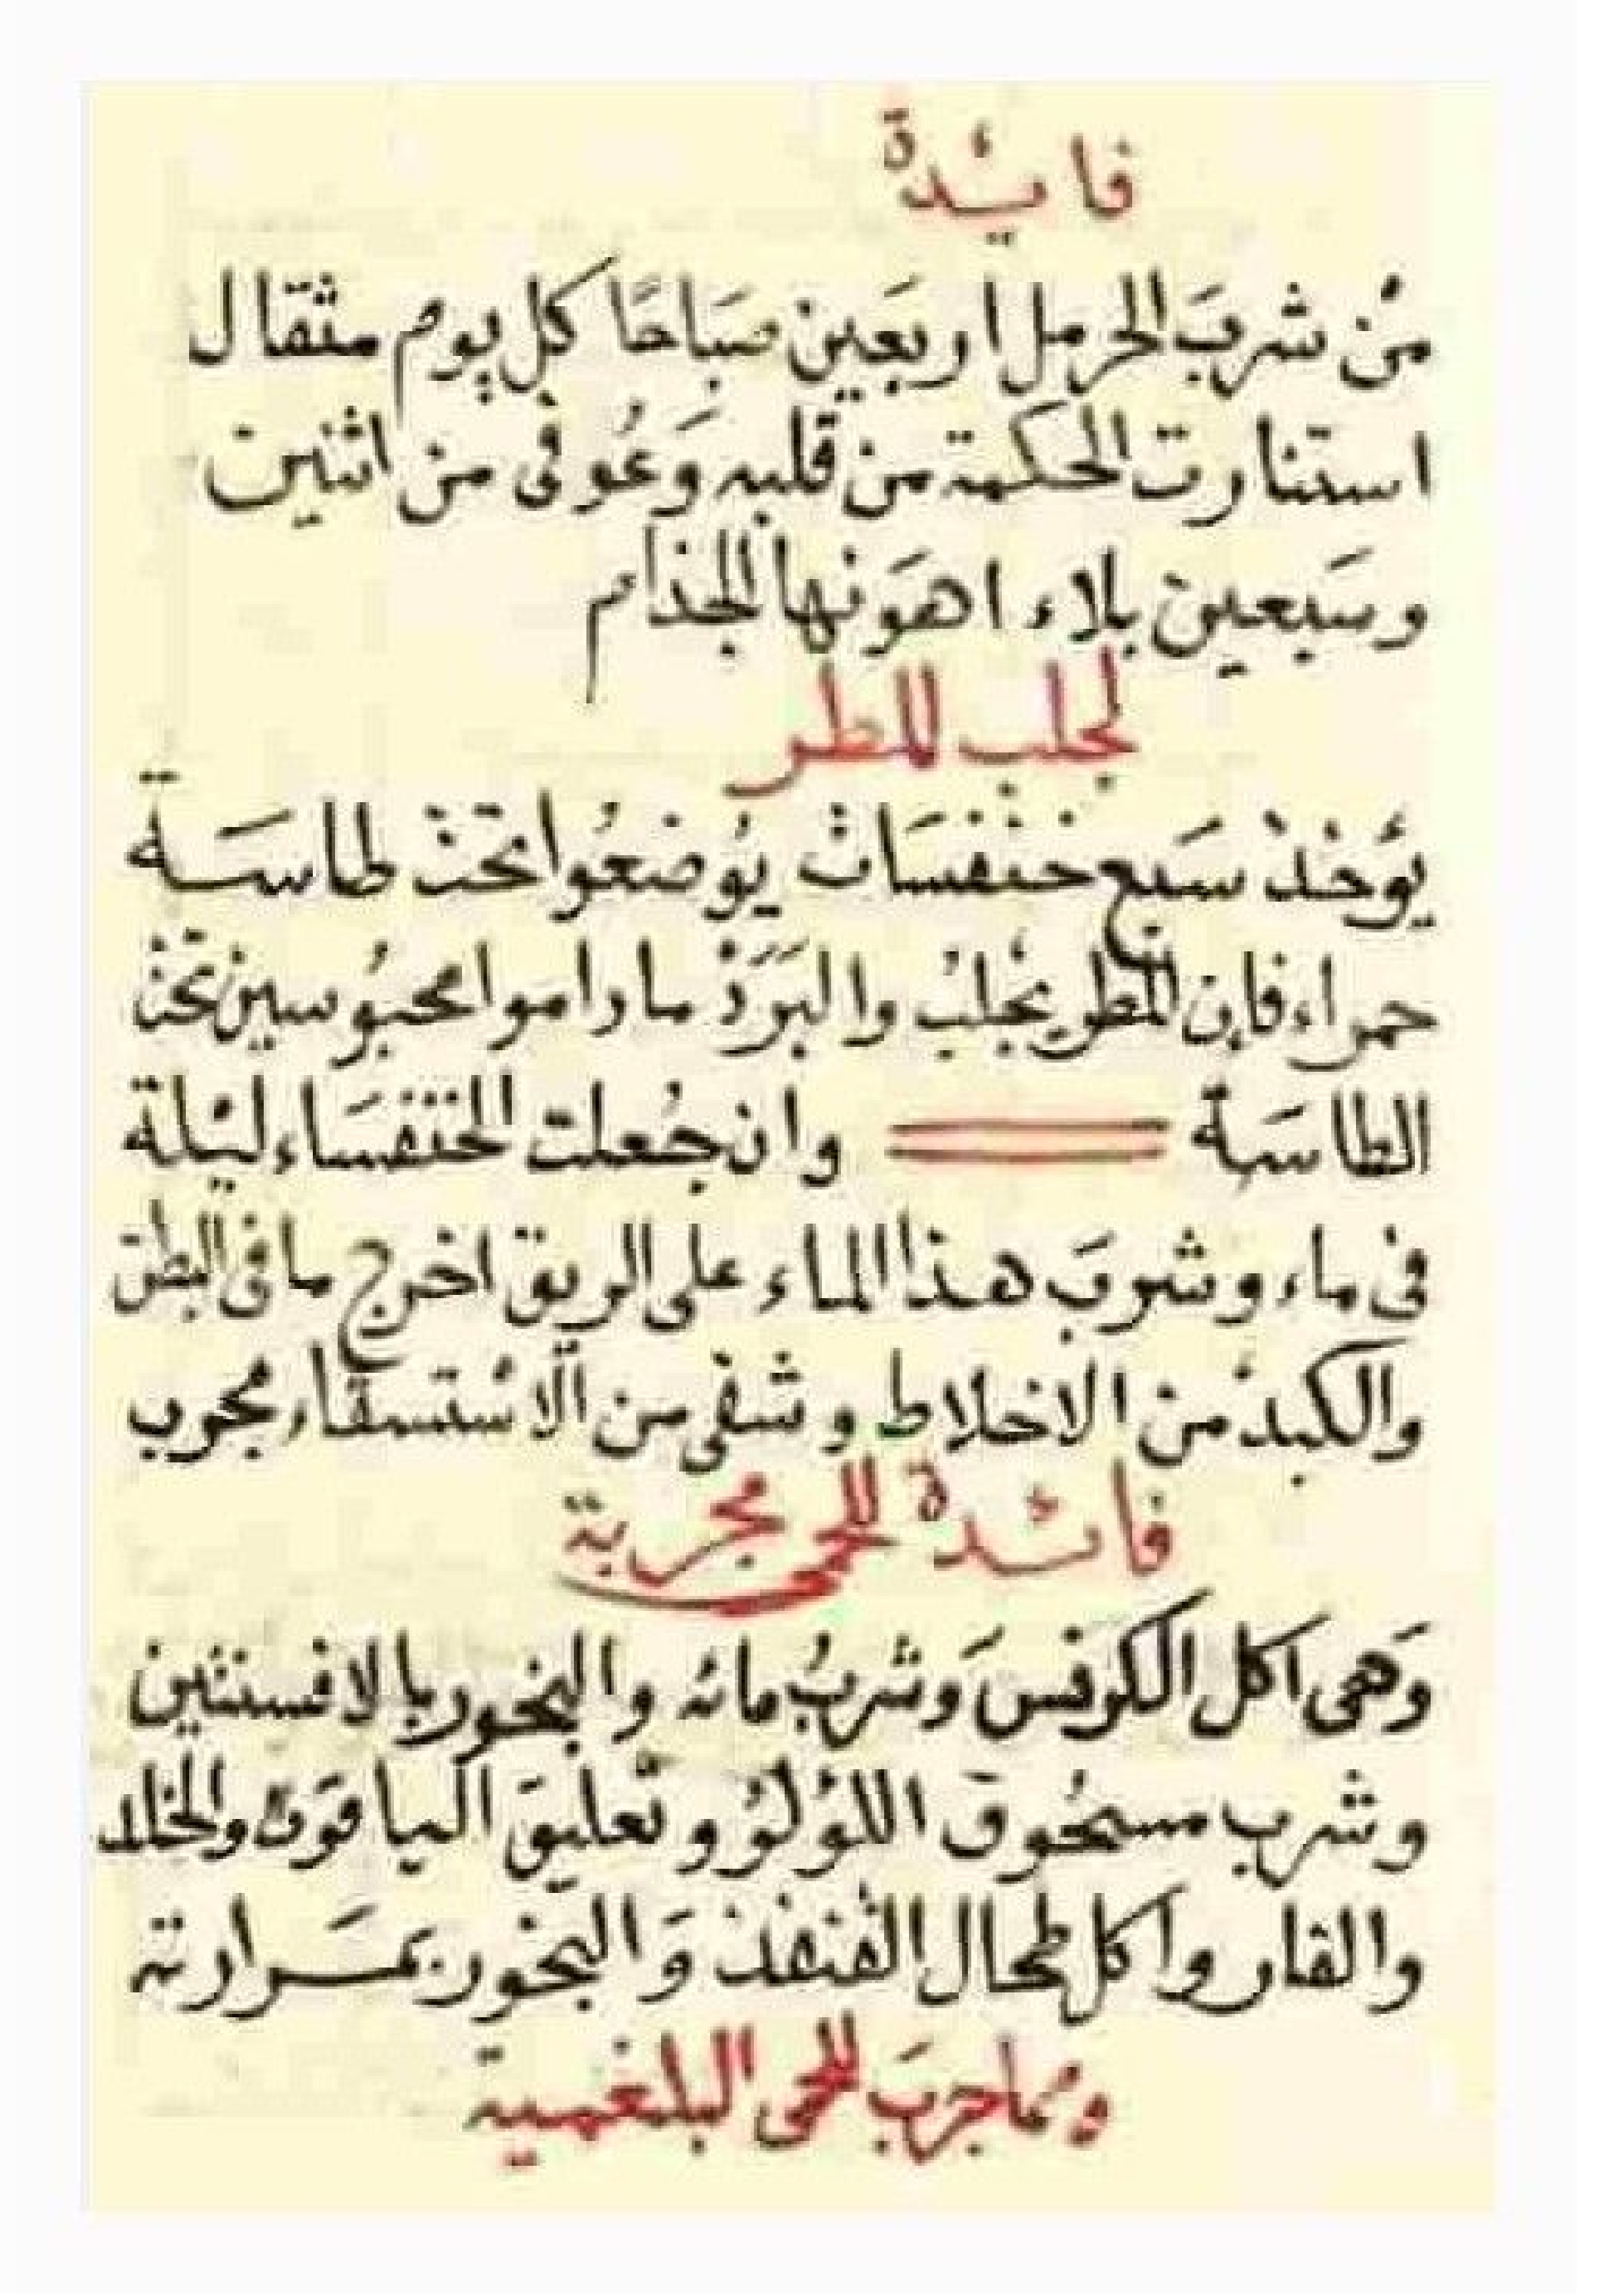 فايئدة
مَن شربَ الحرمل اربَعين صَبَاحًا كل يوم مثقال
استنارت الحكمة من قلبه وَعُوفى من اثنين
وسَبعين بلاء اهوَنها الجذام
لجلب المطر
يؤخذ سَبع خنفسَات يُوضعُوا تحت طاسَة
حمراء فإن المطر يجلبُ والبَرَدْ ما داموا محبُوسين تحت
الطاسَة وان جُعلت الخنفسَاء ليلة
فى ماء وشربَ هذا الماء على الريق اخرج ما فى البطن
والكبد من الاخلاط وشفى من الاستسقاء مجرب
فائدة للحمى مجربة
وَهى اكل الكرفس وَشربُ مائه والبخور بالافسنتين
وشرب مسحُوق اللؤلؤ وتعليق الياقوت والخلد
والفار واكل طحال القنفذ وَالبخور بمَرارته
ومما جربَ للحمى البلغمية